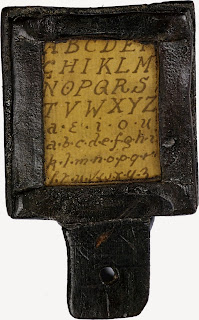 ABCDEF
GHIKLM
NOPQRS
TVWXYZ
a·e·i·o·u
a·b·c·d·e·f·g·h·i
k·l·m·n·o·p·q·r